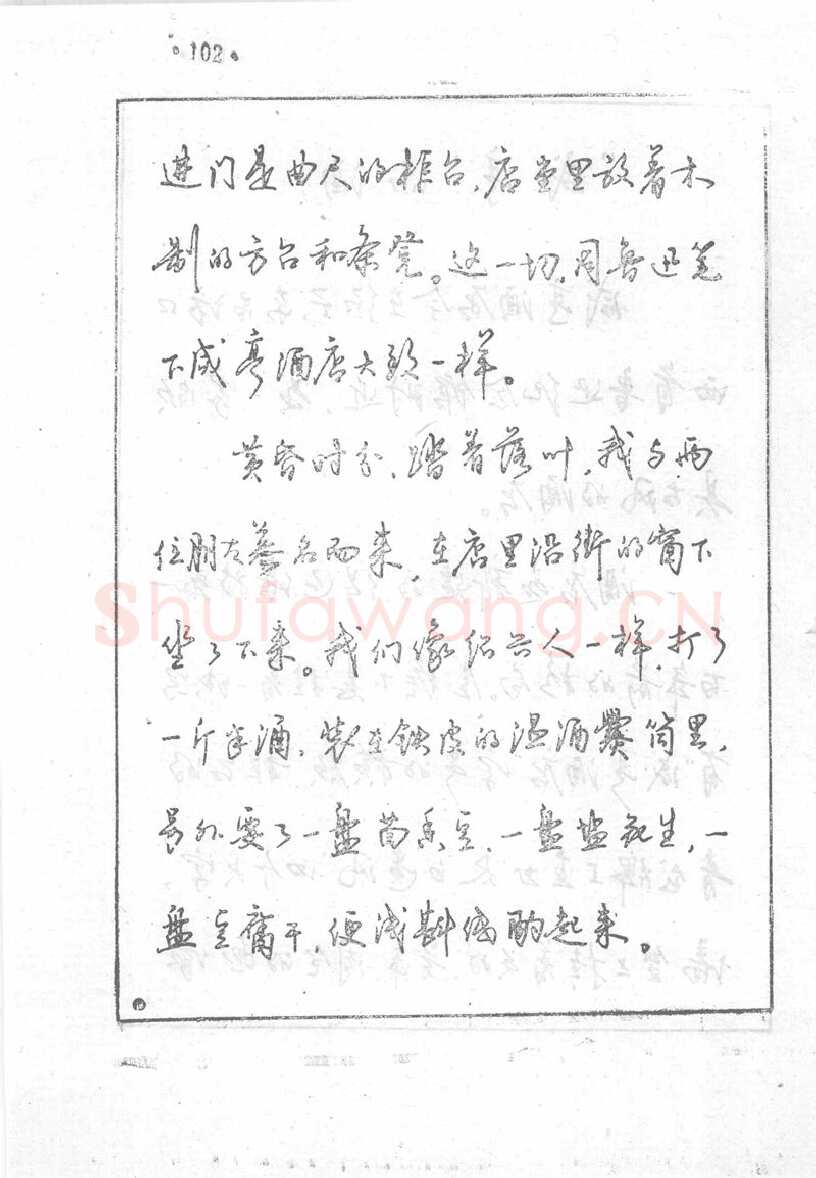 ·102·
进门是曲尺的柜台,店堂里放着木
制的方台和条凳。这一切,同鲁迅笔
下咸亨酒店大致一样。
黄昏时分,踏着落叶,我与两
位朋友慕名而来,在店里沿街的窗下
坐了下来。我们像绍兴人一样,打了
一斤半酒,装在铁皮的温酒爨筒里,
另外要了一盘茴香豆,一盘盐花生,一
盘豆腐干,便浅斟低酌起来。
Shufawang.CN